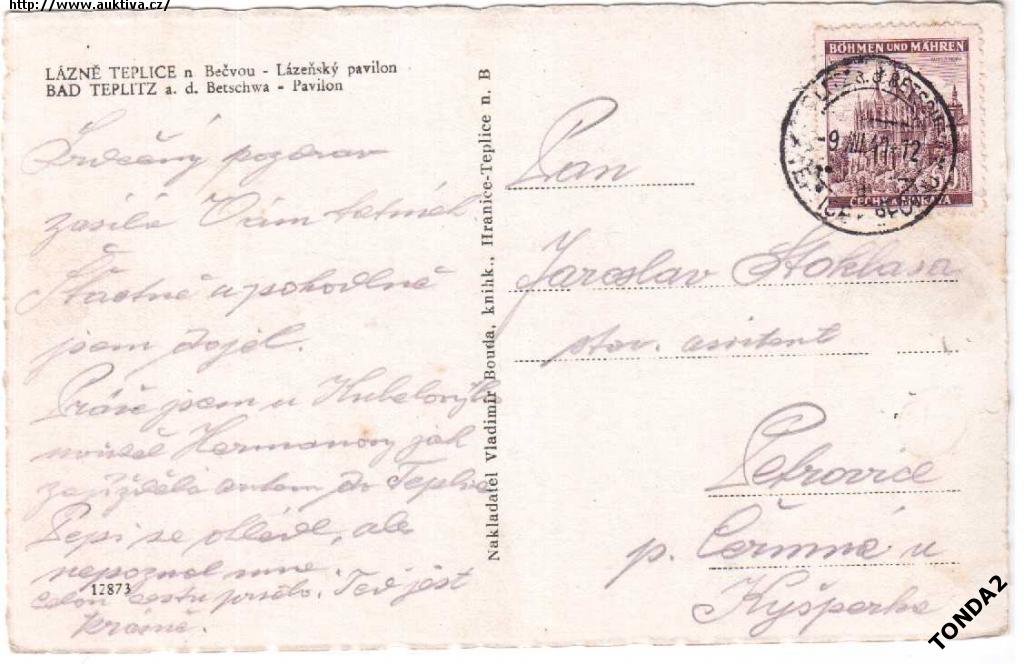 http://www.auktiva.cz/
LÁZNĚ TEPLICE n Bečvou - Lázeňský pavilon
BAD TEPLITZ a. d. Betschwa - Pavilon
Srdečný pozdrav
zasílá Vám
Šťastně a pohodlně
jsem dojel.
Právě jsem u
Hermanovy jak
autem do Teplic
Pepi se ohlédl, ale
nepoznal mne.
12873
celou cestu pršelo. Teď jest
krásně.
Nakladatel Vladimír Bouda, knihk., Hranice-Teplice n. B
BÖHMEN UND MÄHREN
ČECHY A MORAVA
Pan
Jaroslav Stoklasa
stav. asistent
Petrovice
p. Čermná u
Kyšperka
TONDA2